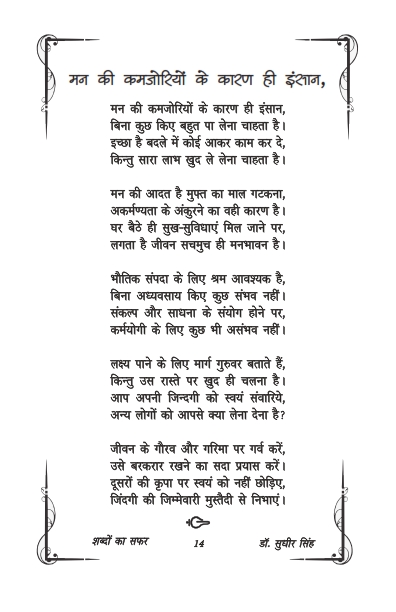 मन की कमजोरियों के कारण ही इंसान,
मन की कमजोरियों के कारण ही इंसान,
बिना कुछ किए बहुत पा लेना चाहता है।
इच्छा है बदले में कोई आकर काम कर दे,
किन्तु सारा लाभ खुद ले लेना चाहता है।
मन की आदत है मुफ्त का माल गटकना,
अकर्मण्यता के अंकुरने का वही कारण है।
घर बैठे ही सुख-सुविधाएं मिल जाने पर,
लगता है जीवन सचमुच ही मनभावन है।
भौतिक संपदा के लिए श्रम आवश्यक है,
बिना अध्यवसाय किए कुछ संभव नहीं।
संकल्प और साधना के संयोग होने पर,
कर्मयोगी के लिए कुछ भी असंभव नहीं।
लक्ष्य पाने के लिए मार्ग गुरुवर बताते हैं,
किन्तु उस रास्ते पर खुद ही चलना है।
आप अपनी जिन्दगी को स्वयं संवारिये,
अन्य लोगों को आपसे क्या लेना देना है?
जीवन के गौरव और गरिमा पर गर्व करें,
उसे बरकरार रखने का सदा प्रयास करें।
दूसरों की कृपा पर स्वयं को नहीं छोड़िए,
जिंदगी की जिम्मेवारी मुस्तैदी से निभाएं।
शब्दों का सफर 14 डॉ. सुधीर सिंह